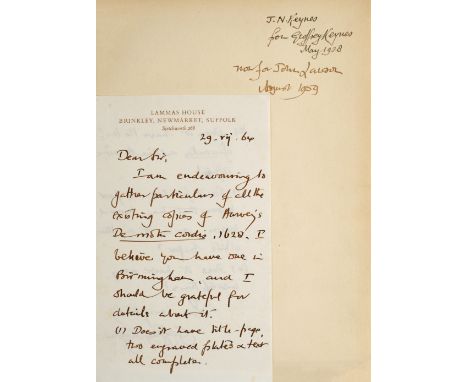 J.N. Keynes
from Geoffrey Keynes
May 1908
now for John Lawson
August 1959
LAMMAS HOUSE
BRINKLEY, NEWMARKET, SUFFOLK
Stetchworth 268
29. vij. 64
Dear Sir,
I am endeavouring to
gather particulars of all the
existing copies of Harvey's
De motu cordis, 1628. I
believe you have one in
Birmingham, and I
should be grateful for
details about it.
(1) Does it have title-page,
two engraved plates & text
all complete.